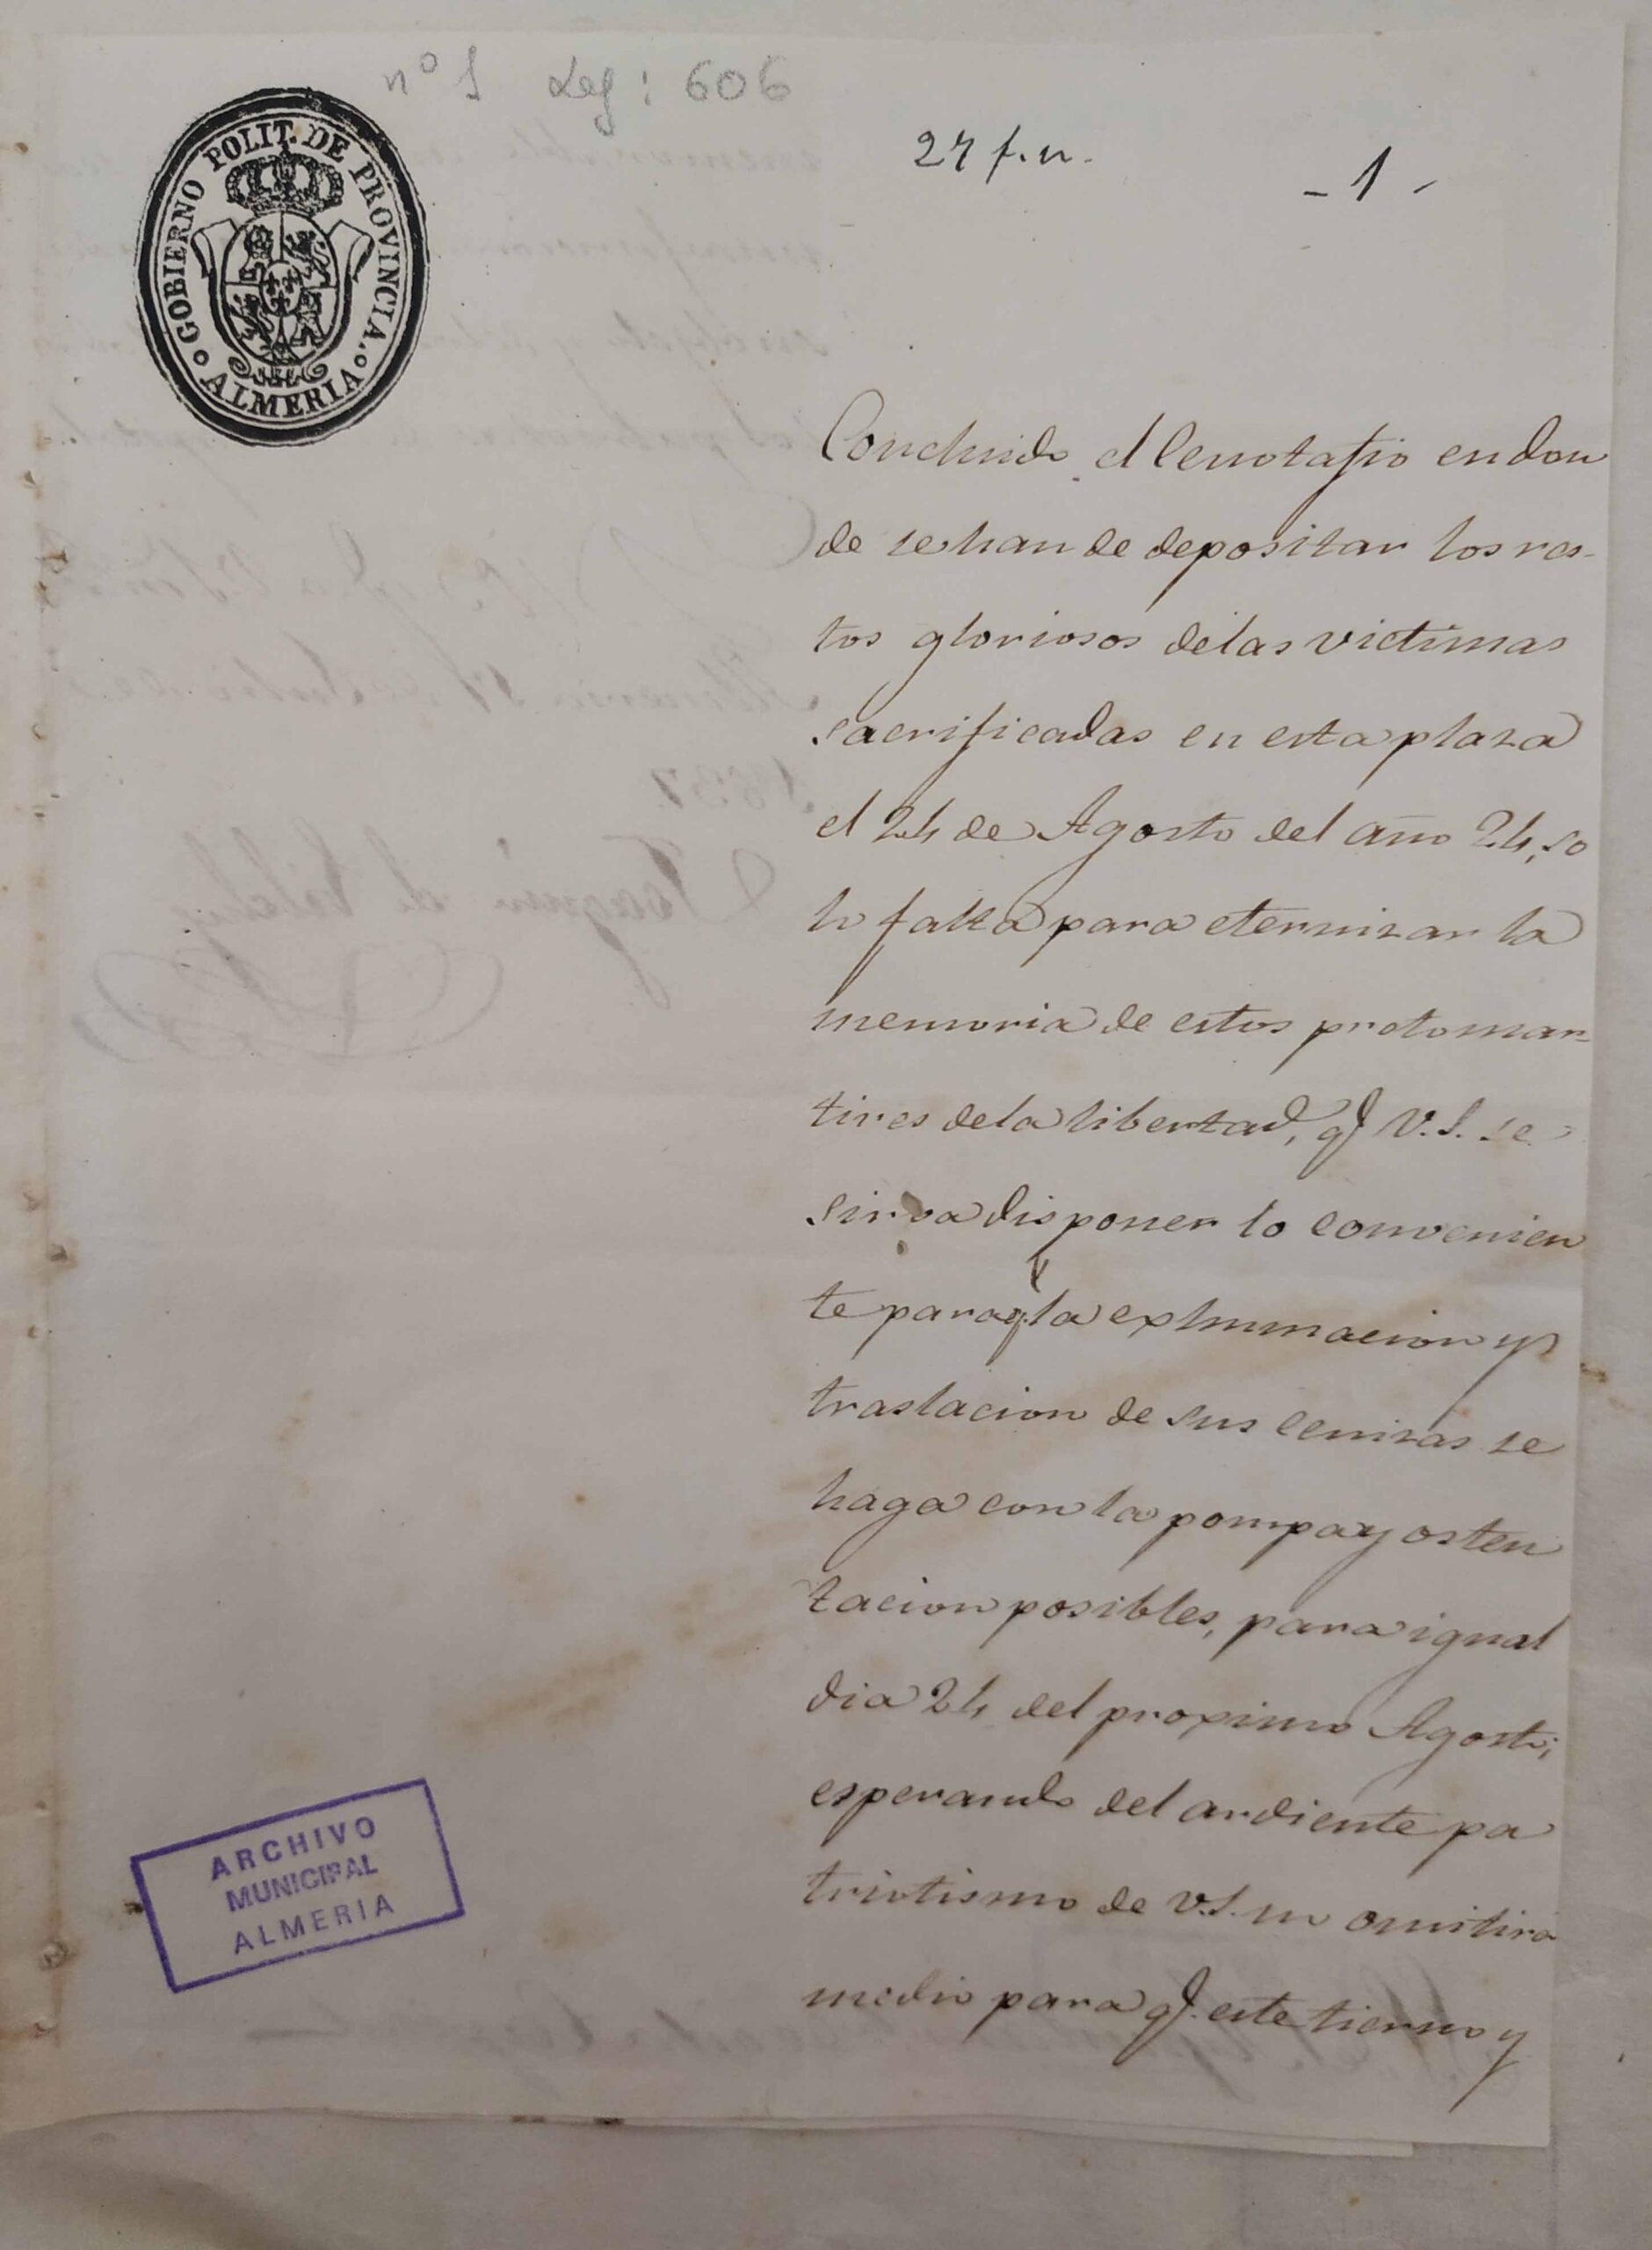 nº 1 Leg: 606
27 f. u.
- 1 -
GOBIERNO POLIT. DE PROVINCIA.
ALMERIA
Concluido el Cenotafio en don
de se han de depositar los res-
tos gloriosos de las victimas
sacrificadas en esta plaza
el 24 de Agosto del año 24, so
lo falta para eternizar la
memoria de estos protomar=
tires de la libertad, q̃ V.S. se
sirva disponer lo convenien
te para q. la exhumacion y
traslacion de sus cenizas se
haga con la pompa y osten
tacion posibles, para igual
dia 24 del proximo Agosto;
esperando del ardiente pa
triotismo de V.S. no omitira
medio para q̃. este tierno y
ARCHIVO
MUNICIPAL
ALMERIA